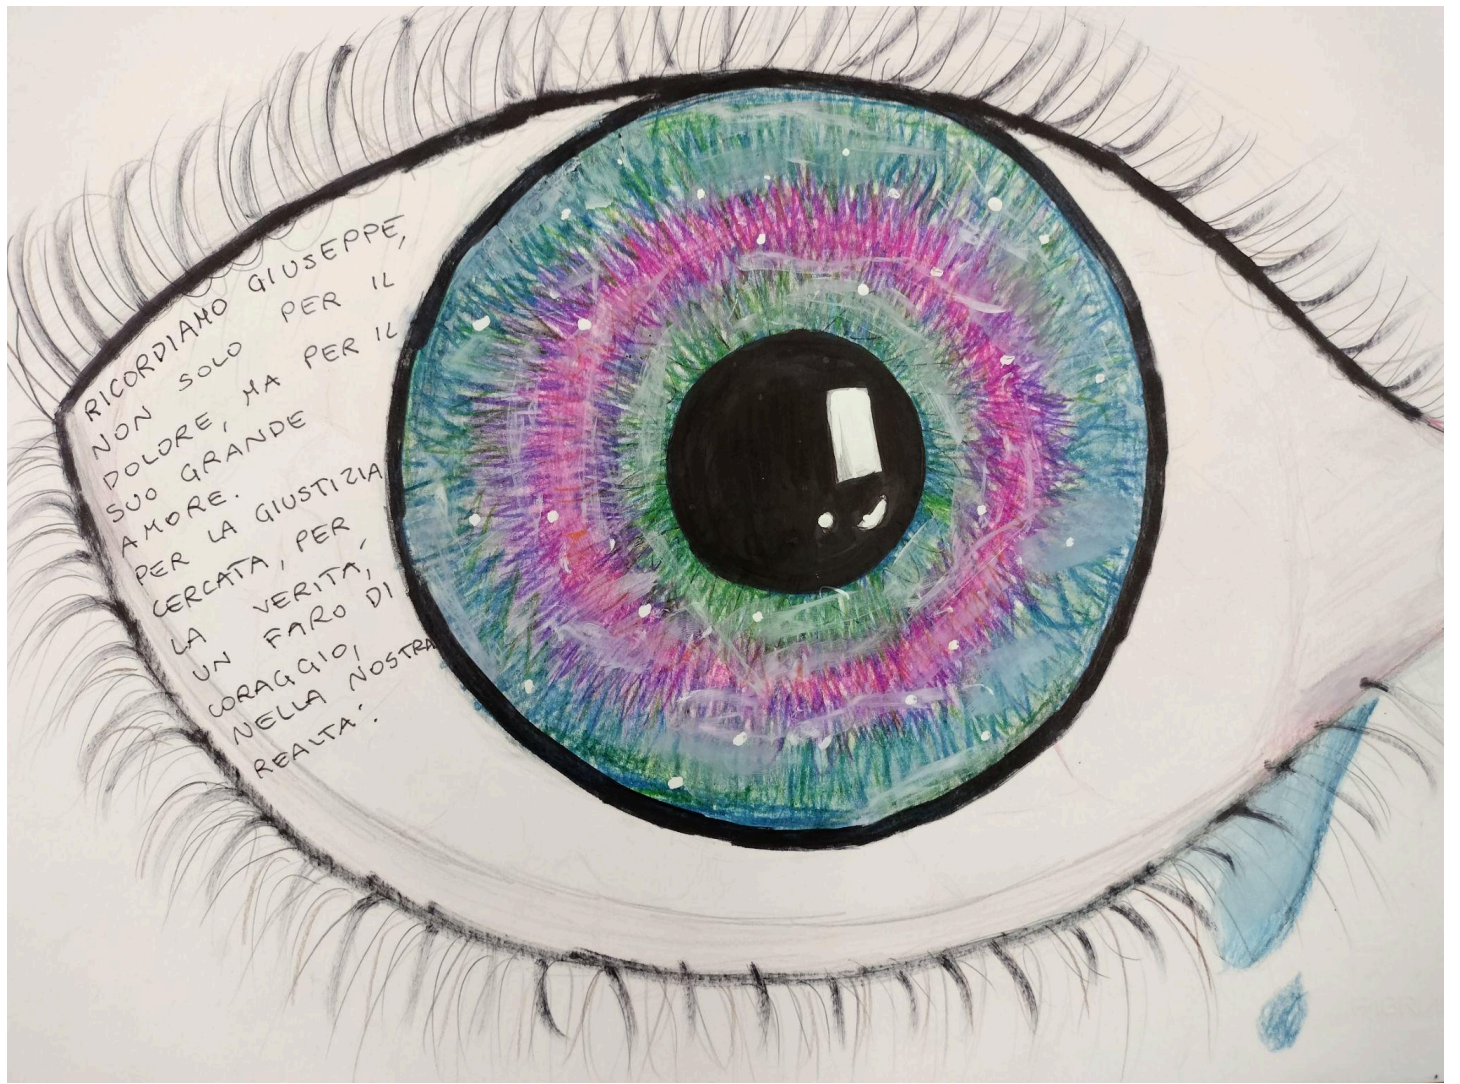 RICORDIAMO GIUSEPPE,
NON SOLO PER IL
DOLORE, MA PER IL
SUO GRANDE
AMORE.
PER LA GIUSTIZIA
CERCATA, PER
LA VERITÁ,
UN FARO DI
CORAGGIO,
NELLA NOSTRA
REALTA'.